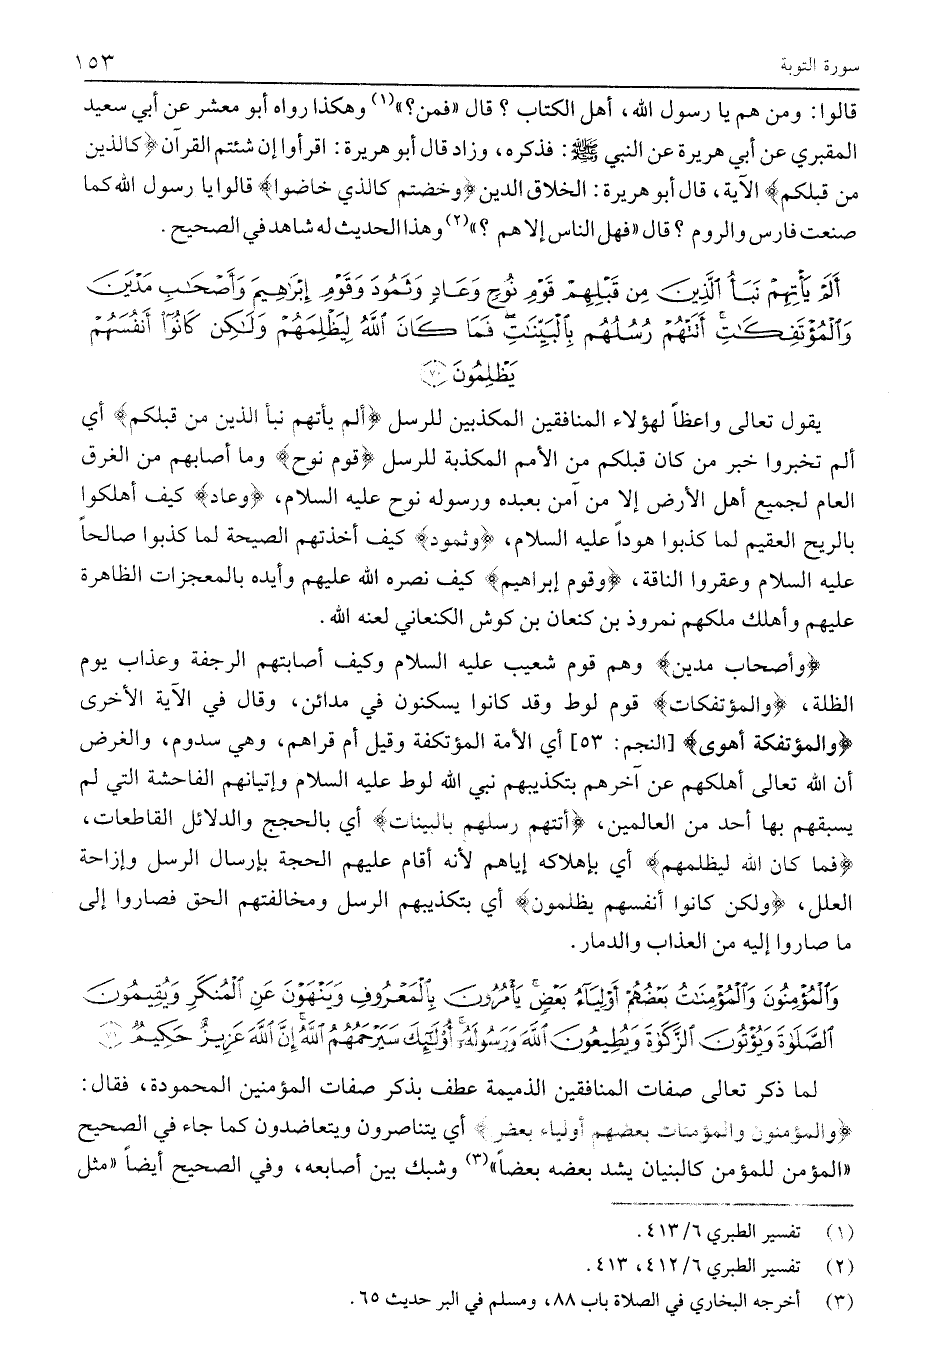 سورة التوبة ١٥٣
قالوا: ومن هم يا رسول الله، أهل الكتاب؟ قال «فمن؟»(١) وهكذا رواه أبو معشر عن أبي سعيد
المقبري عن أبي هريرة عن النبي ﷺ: فذكره، وزاد قال أبو هريرة: اقرأوا إن شئتم القرآن ﴿كالذين
من قبلكم﴾ الآية، قال أبو هريرة: الخلاق الدين ﴿وخضتم كالذي خاضوا﴾ قالوا يا رسول الله كما
صنعت فارس والروم؟ قال «فهل الناس إلا هم؟»(٢) وهذا الحديث له شاهد في الصحيح.
أَلَمْ يَأْتِهِمْ نَبَأُ ٱلَّذِينَ مِن قَبْلِهِمْ قَوْمِ نُوحٍ وَعَادٍ وَثَمُودَ وَقَوْمِ إِبْرَٰهِيمَ وَأَصْحَٰبِ مَدْيَنَ
وَٱلْمُؤْتَفِكَٰتِ ۚ أَتَتْهُمْ رُسُلُهُم بِٱلْبَيِّنَٰتِ ۖ فَمَا كَانَ ٱللَّهُ لِيَظْلِمَهُمْ وَلَٰكِن كَانُوٓا۟ أَنفُسَهُمْ
يَظْلِمُونَ ﴿٧٠﴾
يقول تعالى واعظاً لهؤلاء المنافقين المكذبين للرسل ﴿ألم يأتهم نبأ الذين من قبلكم﴾ أي
ألم تخبروا خبر من كان قبلكم من الأمم المكذبة للرسل ﴿قوم نوح﴾ وما أصابهم من الغرق
العام لجميع أهل الأرض إلا من آمن بعبده ورسوله نوح عليه السلام، ﴿وعاد﴾ كيف أهلكوا
بالريح العقيم لما كذبوا هوداً عليه السلام، ﴿وثمود﴾ كيف أخذتهم الصيحة لما كذبوا صالحاً
عليه السلام وعقروا الناقة، ﴿وقوم إبراهيم﴾ كيف نصره الله عليهم وأيده بالمعجزات الظاهرة
عليهم وأهلك ملكهم نمروذ بن كنعان بن كوش الكنعاني لعنه الله.
﴿وأصحاب مدين﴾ وهم قوم شعيب عليه السلام وكيف أصابتهم الرجفة وعذاب يوم
الظلة، ﴿والمؤتفكات﴾ قوم لوط وقد كانوا يسكنون في مدائن، وقال في الآية الأخرى
﴿والمؤتفكة أهوى﴾ [النجم: ٥٣] أي الأمة المؤتكفة وقيل أم قراهم، وهي سدوم، والغرض
أن الله تعالى أهلكهم عن آخرهم بتكذيبهم نبي الله لوط عليه السلام وإتيانهم الفاحشة التي لم
يسبقهم بها أحد من العالمين، ﴿أتتهم رسلهم بالبينات﴾ أي بالحجج والدلائل القاطعات،
﴿فما كان الله ليظلمهم﴾ أي بإهلاكه إياهم لأنه أقام عليهم الحجة بإرسال الرسل وإزاحة
العلل، ﴿ولكن كانوا أنفسهم يظلمون﴾ أي بتكذيبهم الرسل ومخالفتهم الحق فصاروا إلى
ما صاروا إليه من العذاب والدمار.
وَٱلْمُؤْمِنُونَ وَٱلْمُؤْمِنَٰتُ بَعْضُهُمْ أَوْلِيَآءُ بَعْضٍ ۚ يَأْمُرُونَ بِٱلْمَعْرُوفِ وَيَنْهَوْنَ عَنِ ٱلْمُنكَرِ وَيُقِيمُونَ
ٱلصَّلَوٰةَ وَيُؤْتُونَ ٱلزَّكَوٰةَ وَيُطِيعُونَ ٱللَّهَ وَرَسُولَهُۥٓ ۚ أُو۟لَٰٓئِكَ سَيَرْحَمُهُمُ ٱللَّهُ ۗ إِنَّ ٱللَّهَ عَزِيزٌ حَكِيمٌ ﴿٧١﴾
لما ذكر تعالى صفات المنافقين الذميمة عطف بذكر صفات المؤمنين المحمودة، فقال:
﴿والمؤمنون والمؤمنات بعضهم أولياء بعض﴾ أي يتناصرون ويتعاضدون كما جاء في الصحيح
«المؤمن للمؤمن كالبنيان يشد بعضه بعضاً»(٣) وشبك بين أصابعه، وفي الصحيح أيضاً «مثل
(١) تفسير الطبري ٤١٣/٦.
(٢) تفسير الطبري ٤١٢/٦، ٤١٣.
(٣) أخرجه البخاري في الصلاة باب ٨٨، ومسلم في البر حديث ٦٥.